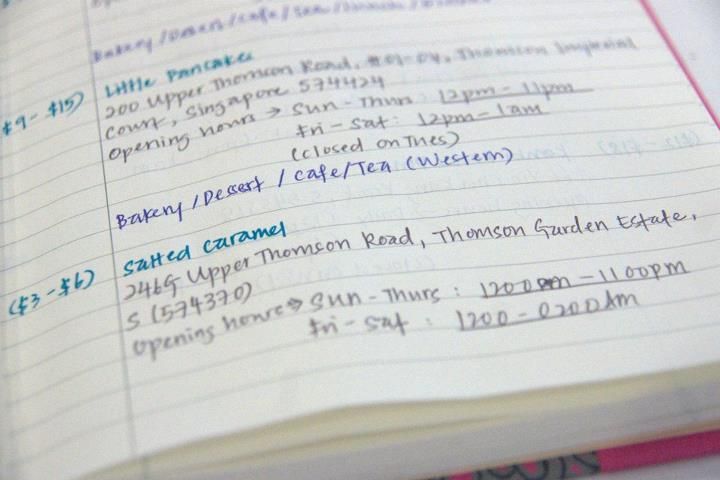 Bakery / Dessert / cafe / Tea /
Little Pancakes
($9 - $15) 200 Upper Thomson Road, #01-04, Thomson Imperial
court, Singapore 574424
Opening hours → Sun - Thurs: 12pm - 11pm
Fri - Sat: 12pm - 1am
(closed on Tues)
Bakery / Dessert / cafe / Tea (Western)
Salted caramel
($3 - $6) 246G Upper Thomson Road, Thomson Garden Estate,
S (574370)
Opening hours → Sun - Thurs : 1200pm - 1100pm
Fri - Sat : 1200 - 0200Am